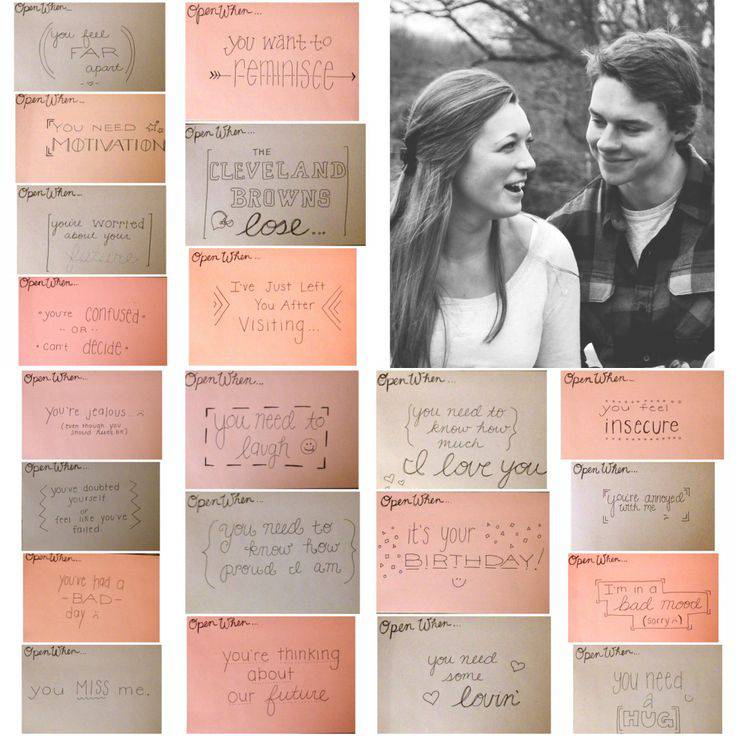 Open When...
you feel
FAR
apart
Open When...
YOU NEED
MOTIVATION
Open When...
you're worried
about your
future
Open When...
you're confused
·· OR ··
can't decide
Open When...
you're jealous...
(even though you
shouldn't be)
Open When...
you've doubted
yourself
or
feel like you've
failed
Open When...
you've had a
-BAD-
day
Open When...
you MISS me.
Open When...
you want to
reminisce
Open When...
THE
CLEVELAND
BROWNS
lose...
Open When...
I've Just Left
You After
Visiting...
Open When...
you need to
laugh
Open When...
you need to
know how
proud I am
Open When...
you're thinking
about
our future
Open When...
you need to
know how
much
I love you
Open When...
it's your
BIRTHDAY!
Open When...
you need
some
lovin'
Open When...
you feel
insecure
Open When...
you're annoyed
with me
Open When...
I'm in a
bad mood
(sorry)
Open When...
you need
a
HUG